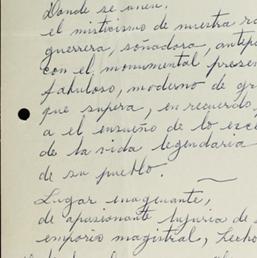 Donde se unen,
el misticismo de nuestra
guerrera, soñadora,
con el monumental
fabuloso, moderno de
que supera, en recuerdo
a el ensueño de lo
de la vida legendaria
de su pueblo.
Lugar enagenante,
de apasionante lujuria de
emporio magistral, hecho